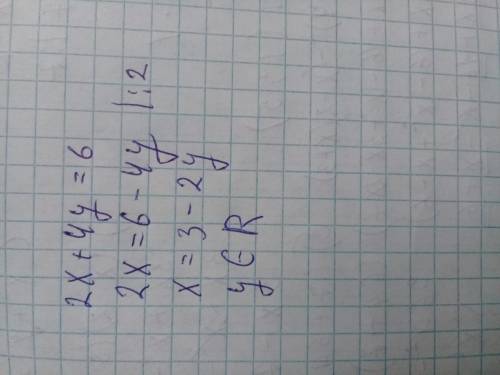 2x + 4y = 6
2x = 6 - 4y | : 2
x = 3 - 2y
y ∈ R